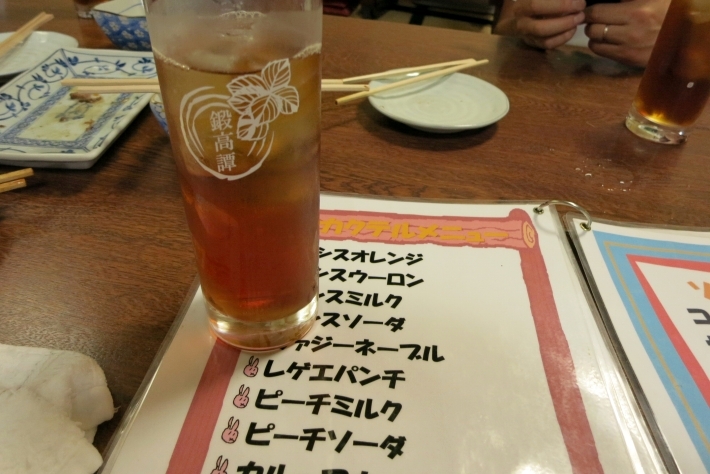 鍛高譚
カクテルメニュー
シスオレンジ
シスウーロン
シスミルク
スソーダ
ァジーネーブル
レゲエパンチ
ピーチミルク
ピーチソーダ
カル
ソ
コ